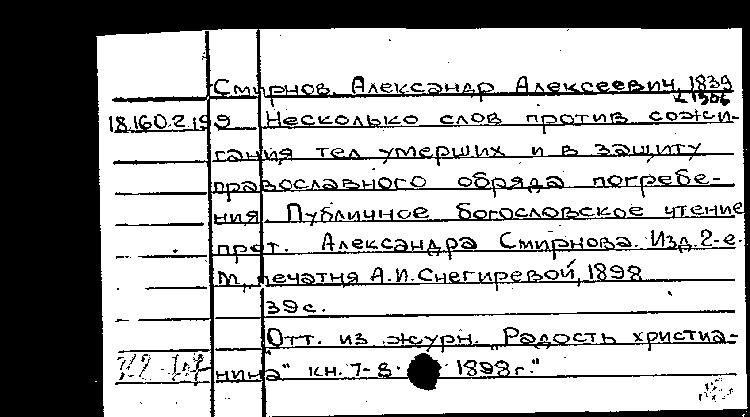 Смирнов, Александр Алексеевич, 1839
18.160.2.199 Несколько слов против сожи-
гания тел умерших и в защиту
православного обряда погребе-
ния. Публичное богословское чтение
прот. Александра Смирнова. Изд. 2-е.
М., печатня А.И. Снегиревой, 1898
39 с.
Отт. из журн. „Радость христиа-
нина" кн. 7-8. 1898 г."